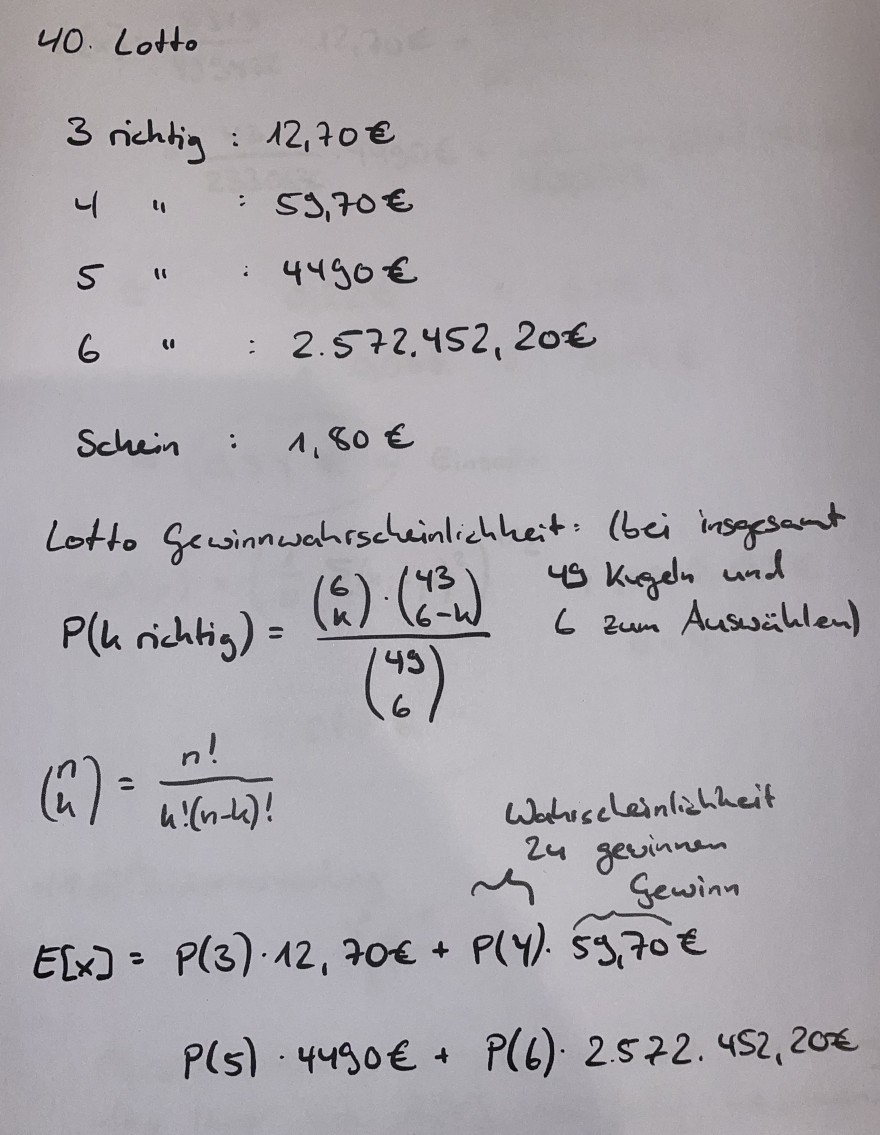 40. Lotto
3 richtig : 12,70 €
4 " : 59,70 €
5 " : 4490 €
6 " : 2.572.452,20€
Schein : 1,80 €
Lotto Gewinnwahrscheinlichkeit: (bei insgesamt
49 Kugeln und
6 zum Auswählen)
P(k richtig) = (6 k) · (43 6-k) / (49 6)
(n k) = n! / k!(n-k)!
Wahrscheinlichkeit
zu gewinnen
Gewinn
E[x] = P(3) · 12,70€ + P(4) · 59,70 €
P(5) · 4490 € + P(6) · 2.572.452,20€